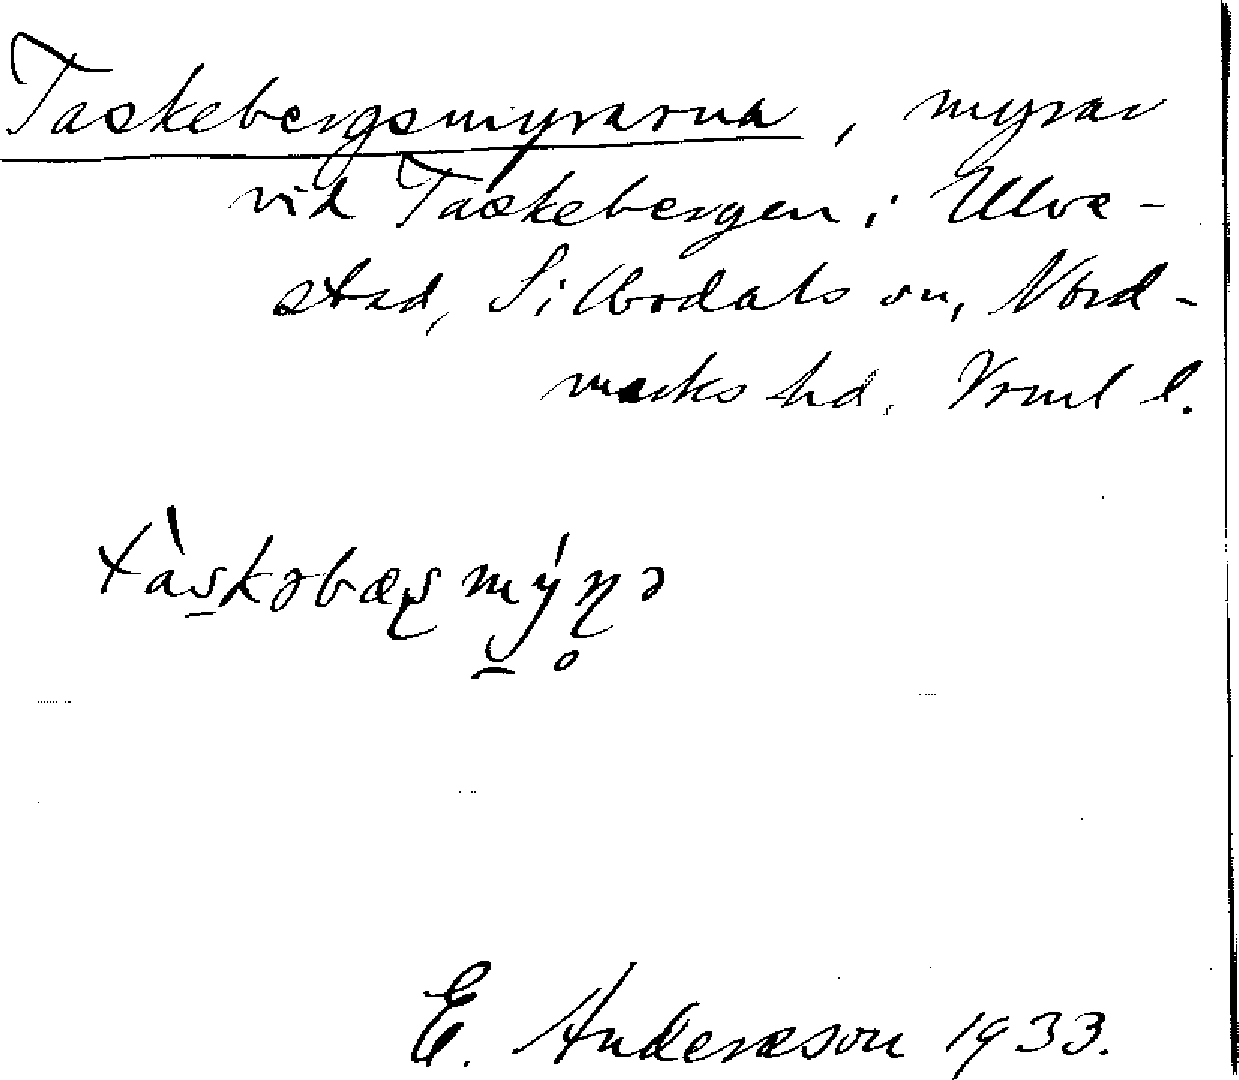 Taskebergsmyrarna, myrar
vid Taskebergen i Ulve-
stad, Silbodals sn, Nord-
marks hd. Vrml l.
tàskəbæʂmýɳə
E. Andersson 1933.